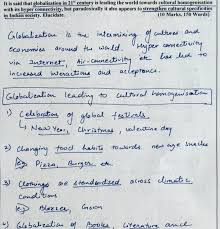 It is said that globalisation in 21st century is leading the world towards cultural homogenisation
with its hyper connectivity, but paradoxically it also appears to strengthen cultural specificities
in Indian society. Elucidate. (10 Marks, 150 Words)
Globalization is the intermixing of cultures and
economies around the world. Hyper connectivity
via internet, Air-connectivity etc has led to
increased interactions and acceptance.
Globalization leading to cultural homogenisation
1) Celebration of global festivals
New Year, Christmas, valentine day
2) Changing food habits towards new age snacks
eg Pizza, Burger etc
3) Clothings are standardized across climatic
conditions
eg Blazer, Gown
4) Globalization of Books, literature and